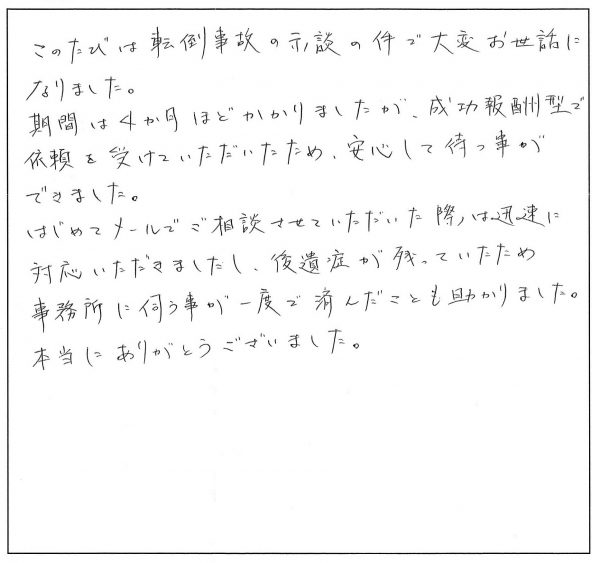 このたびは転倒事故の示談の件で大変お世話に
なりました。
期間は4か月ほどかかりましたが、成功報酬型で
依頼を受けていただいたため、安心して待つ事が
できました。
はじめてメールでご相談させていただいた際は迅速に
対応いただきましたし、後遺症が残っていたため
事務所に伺う事が一度で済んだことも助かりました。
本当にありがとうございました。